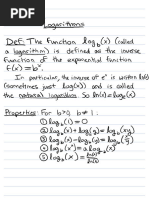 Logarithms
Def: The function log_b(x) (called
a logarithm) is defined as the inverse
function of the exponential function
f(x)=b^x.
In particular, the inverse of e^x is written ln(x)
(sometimes just log(x)) and is called
the natural logarithm. So ln(x)=log_e(x)
Properties: For b>0, b≠1:
① log_b(1)=0
② log_b(x)+log_b(y)=log_b(xy)
③ log_b(x)-log_b(y)=log_b(x/y)
④ log_b(x^y)=y log_b(x)